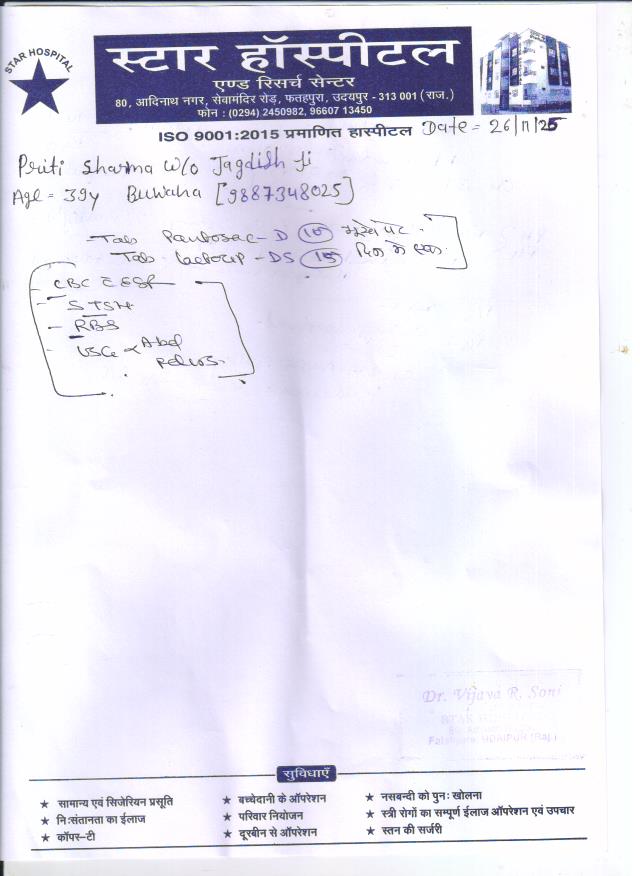 STAR HOSPITAL
स्टार हॉस्पीटल
एण्ड रिसर्च सेन्टर
80, आदिनाथ नगर, सेवामंदिर रोड, फतहपुरा, उदयपुर - 313 001 (राज.)
फोन : (0294) 2450982, 96607 13450
ISO 9001:2015 प्रमाणित हास्पीटल Date = 26/11/25
Priti Sharma W/o Jagdish Ji
Age = 39y [9887348025]
- Tab Pantosac - D 10 भूखे पेट
Tab - DS 10 दिन में एक
- CBC ESR
- S TSH
- RBS
- USG Abd
Pelvis
Dr. Vijaya R. Soni
STAR
UDAIPUR (Raj.)
सुविधाएँ
★ सामान्य एवं सिजेरियन प्रसूति ★ बच्चेदानी के ऑपरेशन ★ नसबन्दी को पुनः खोलना
★ निःसंतानता का ईलाज ★ परिवार नियोजन ★ स्त्री रोगों का सम्पूर्ण ईलाज ऑपरेशन एवं उपचार
★ कॉपर-टी ★ दूरबीन से ऑपरेशन ★ स्तन की सर्जरी